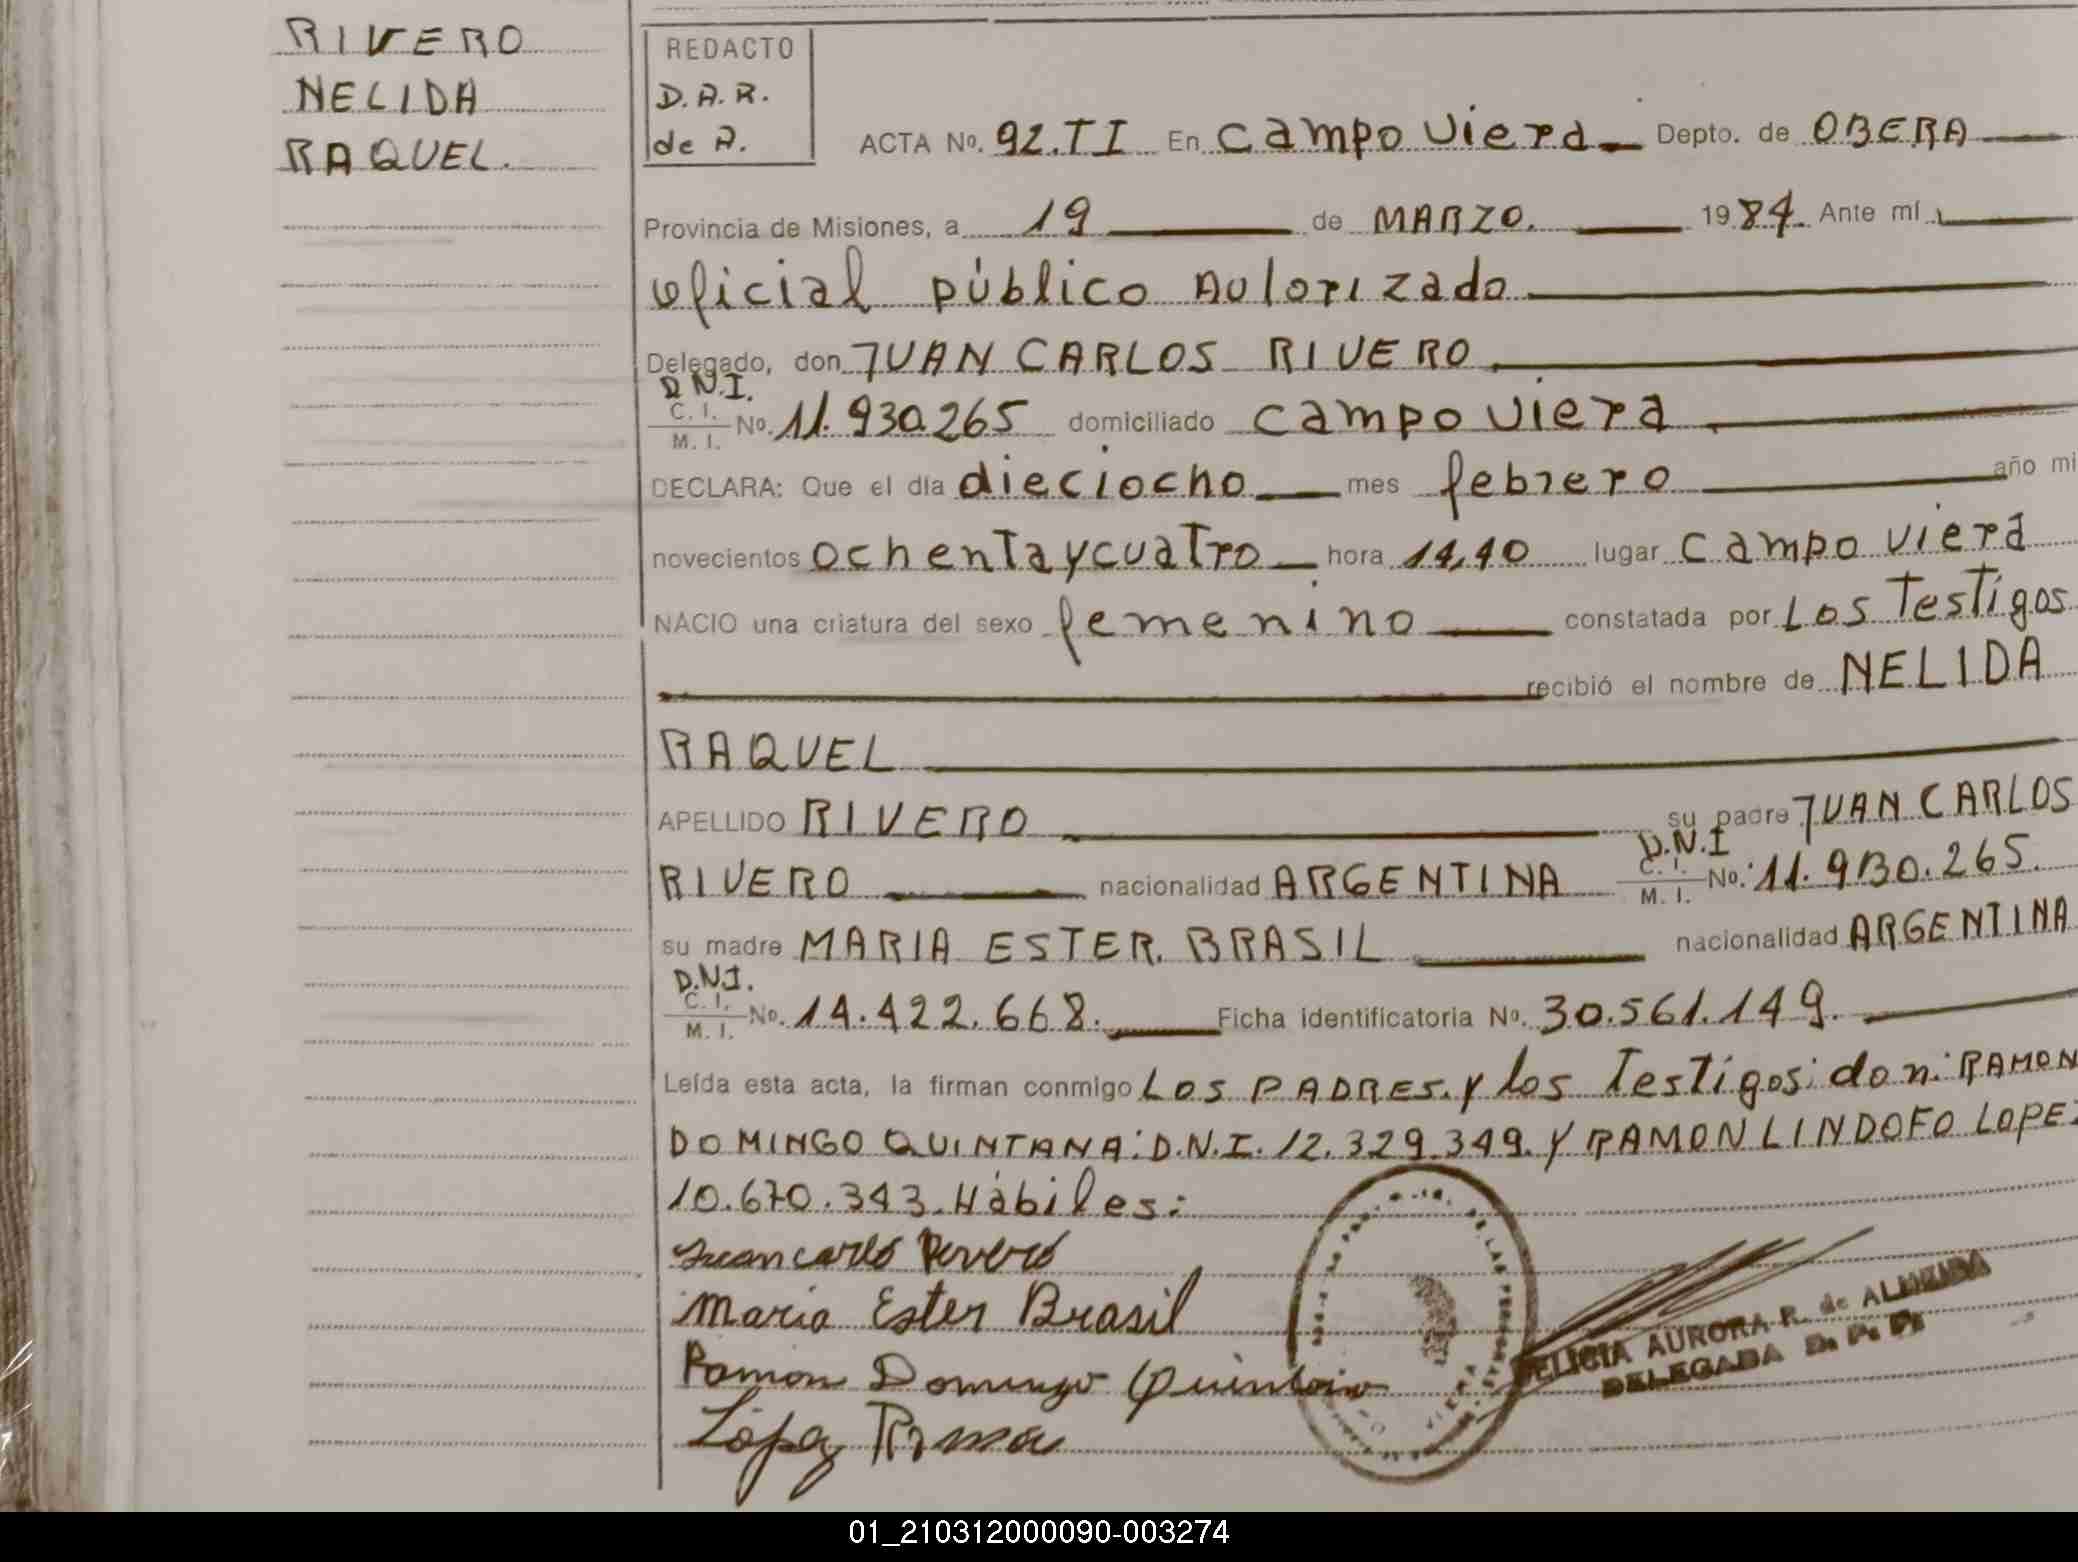 RIVERO
NELIDA
RAQUEL.
REDACTO
D.A.R.
de A.
ACTA No. 92.TI En Campo Viera Depto. de OBERA
Provincia de Misiones, a 19 de MARZO. 1984. Ante mí
oficial público Autorizado
Delegado, don JUAN CARLOS RIVERO
D.N.I.
C. I.
M. I. No. 11.930.265 domiciliado Campo Viera
DECLARA: Que el día dieciocho mes febrero año mi
novecientos ochenta y cuatro hora 14,40 lugar Campo Viera
NACIO una criatura del sexo femenino constatada por Los Testigos
recibió el nombre de NELIDA
RAQUEL
APELLIDO RIVERO su padre JUAN CARLOS
D.N.I
RIVERO nacionalidad ARGENTINA C. I. M. I. No. 11.930.265.
su madre MARIA ESTER. BRASIL nacionalidad ARGENTINA
D.N.I.
C. I.
M. I. No. 14.422.668. Ficha identificatoria No. 30.561.149.
Leída esta acta, la firman conmigo LOS PADRES. y los Testigos: don: RAMON
DOMINGO QUINTANA: D.N.I. 12.329.349. Y RAMON LINDOFO LOPEZ
10.670.343. Hábiles:
Juan carlo Rivero
Maria Ester Brasil
Ramon Domingo Quintana
López
FELICIA AURORA R. de ALMEIDA
DELEGADA D. P. P.
01_210312000090-003274